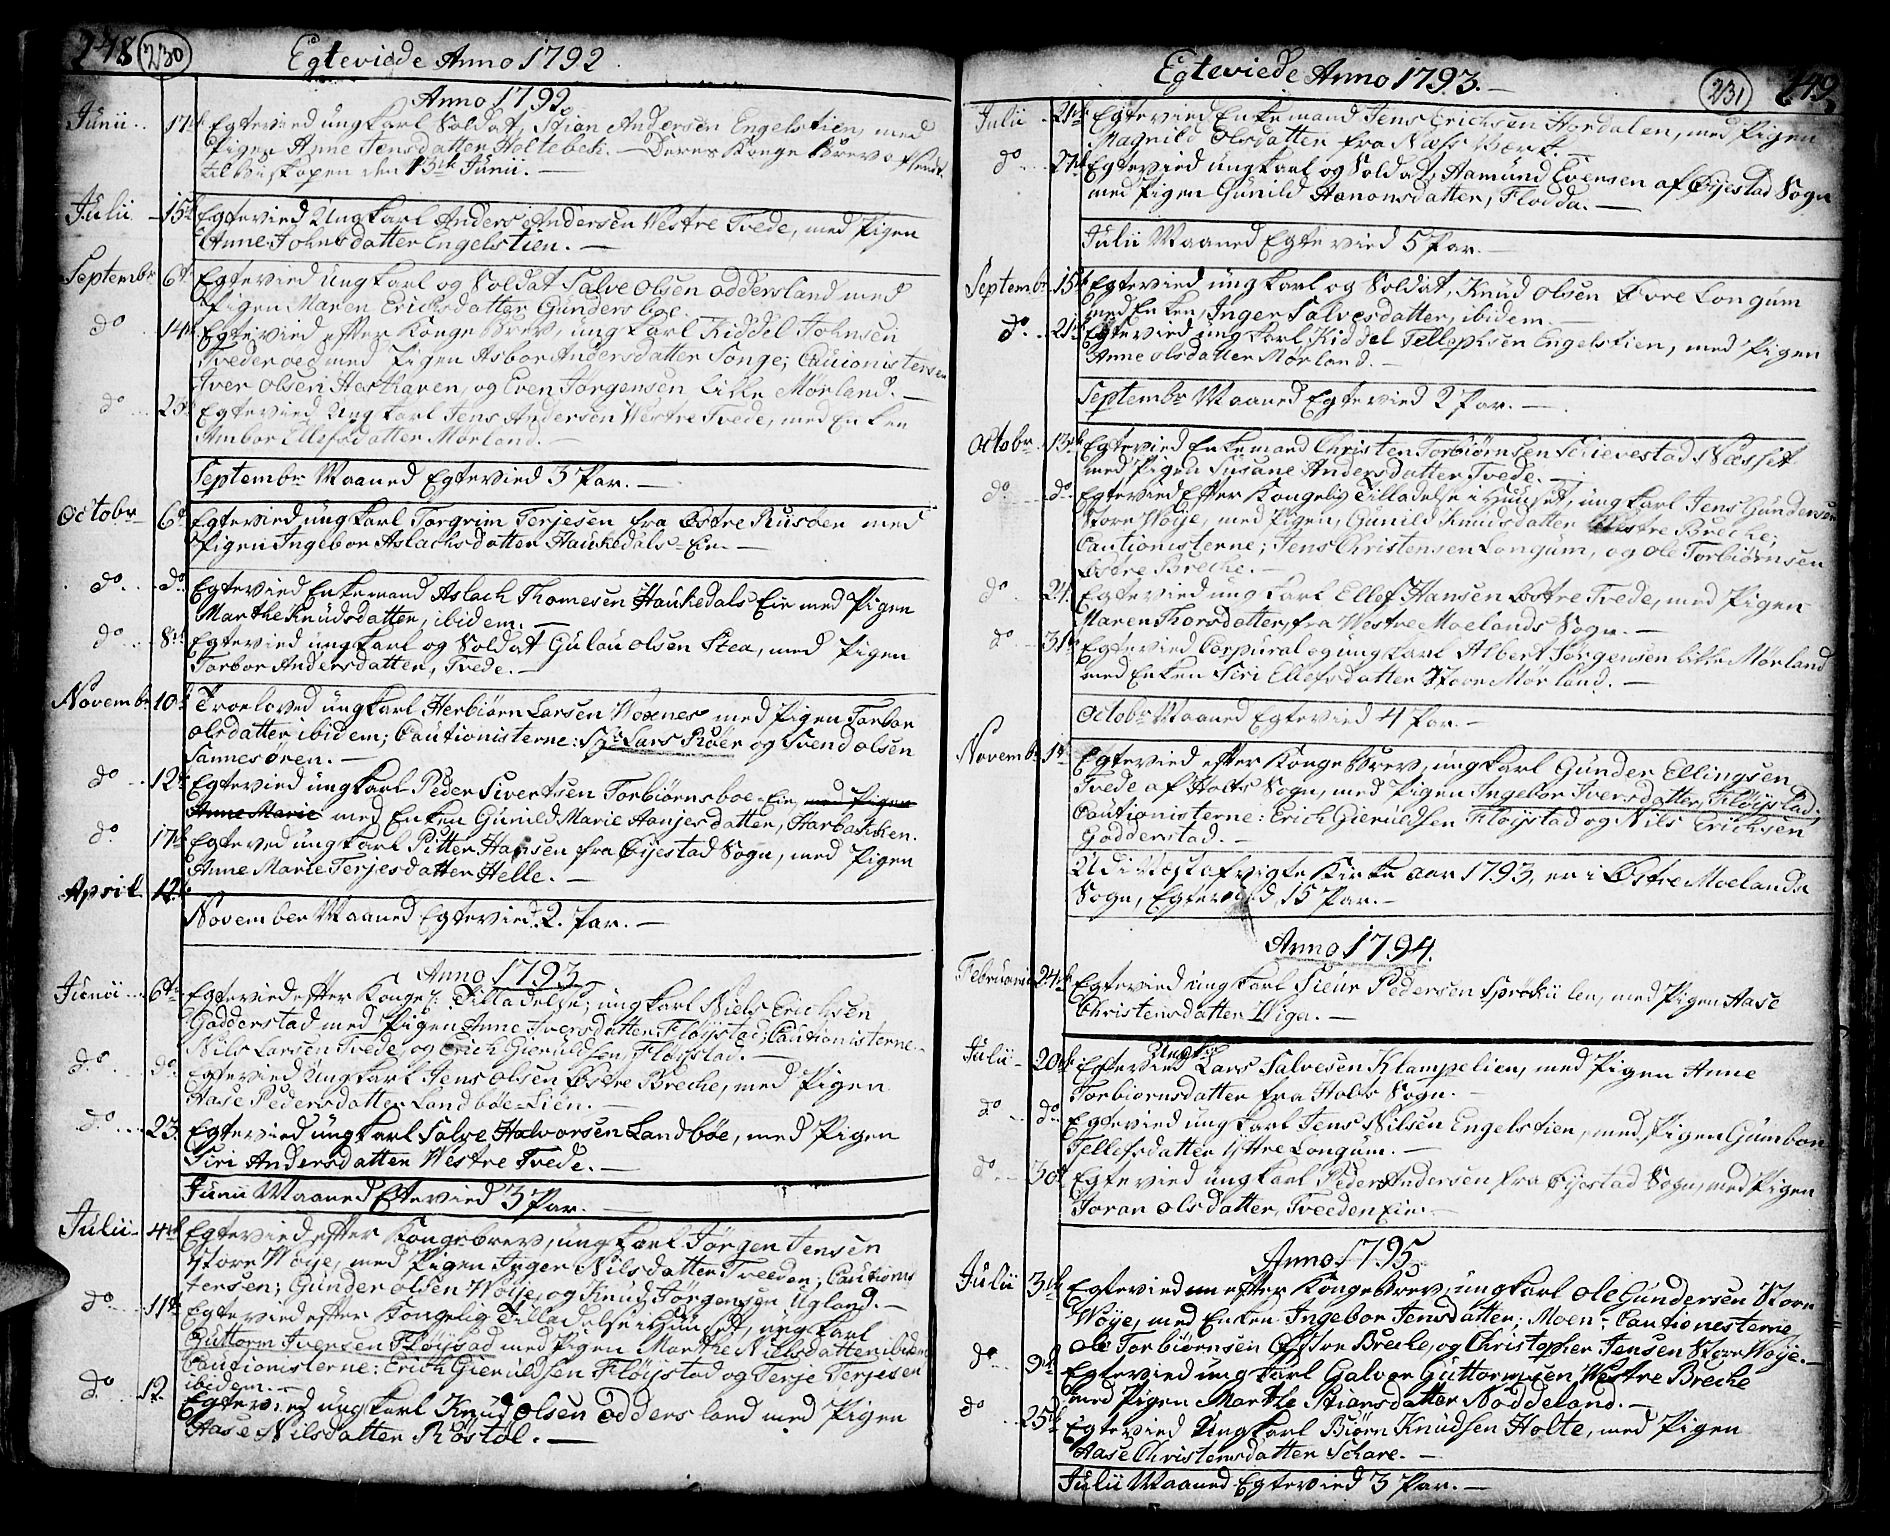 248 230 Egteviede Anno 1792.
Anno 1792
Junii .. 17de Egtevied ungkarl Soldat, Stian Andersen Engelstien, med
Pigen Anne Jensdatter Holtebek. — Deres Konge Brev afsendt
til Biskopen den 13de Junii. —
Julii 15de Egtevied Ungkarl Anders Andersen Westre Tvede, med Pigen
Anne Johnsdatter Engelstien. —
Septembr 6te Egtevied ungkarl og Soldat Salve Olsen Oddersland med
Pigen Maren Ericksdatter Gundersboe.
do .. 14de Egtevied efter Konge Brev, ungkarl Kiddel Johnsen
Tvederoed med Pigen Asbor Andersdatter Songe; Cautionisterne
Iver Olsen Hesthaven, og Even Jørgensen Lille Mørland. —
do ... 23de Egtevied Ungkarl Jens Andersen Westre Tvede, med Enken
Ambor Ellefsdatter Mørland. —
Septembr Maaned Egtevied 3 Par. —
Octobr 6te Egtevied ungkarl Torgrim Terjesen fra Østre Riisøen med
Pigen Ingebor Aslachsdatter Haukedals-Eie. —
do .. do Egtevied Enkemand Aslach Thomesen Haukedals Eie med Pigen
Marthe Knudsdatter, ibidem. —
do .. 8de Egtevied ungkarl og Soldat Gulou Olsen Stea, med Pigen
Torbor Andersdatter, Tvede. —
Novembr 10de Troeloved ungkarl Herbiørn Larsen Woxnes med Pigen Torbor
Olsdatter ibidem; Cautionisterne: Sr Lars Röer og Svend Olsen
Sannesören. —
do .. 12te Egtevied ungkarl Peder Sivertsen Torbiørnsboe-Eie, med Pigen
Anne Marie med Enken Gunild Marie Hansesdatter, Harbakken.
do. 17de Egteved ungkarl Pitter Hansen fra Øijestad Sogn, med Pigen
Anne Marie Terjesdatter Helle. —
April 12te
November Maaned Egtevied 2. Par. —
Anno 1793
Junii .. 6te Egtevied efter Kongel: Tilladelse, ungkarl Niels Erichsen
Godderstad med Pigen Anne Iversdatter Fløystad; Cautionisterne
Nils Larsen Tvede, og Erich Gieruldsen Fløystad. —
do .. do Egtevied Ungkarl Jens Olsen Østre Breche, med Pigen
Aase Pedersdatter Landbøe-Lien. —
do .... 23. Egtevied ungkarl Salve Halvorsen Landbøe, med Pigen
Siri Andersdatter Westre Tvede. —
Junii Maaned Egtevied 3 Par. —
Julii 4de Egtevied efter Kongebrev, ungkarl Jørgen Jensen
Store Woye, med Pigen Inger Nilsdatter Treeden; Cautionis
tersen; Gunder Olsen Woije, og Knud Jørgensen Ugland. —
do .. 11te Egtevied efter Kongelig Tilladelse i Huuset, ungkarl
Guttorm Iversen Fløystad med Pigen Marthe Nilsdatter ibidem
Cautionisterne: Erich Gieruldsen Fløystad og Terje Terjesen
ibidem. —
do .. 12. Egtevied ungkarl Knud Olsen Oddersland med Pigen
Aase Nilsdatter Røstøl. —
Egteviede Anno 1793. — 231 249
Julii .. 21de Egtevied Enkemand Jens Erichsen Hordalen, med Pigen
Magnild Olsdatter fra Næss Værk. —
do .... 27de Egtevied ungkarl og Soldat, Aamund Evensen af Øijestad Sogn
med Pigen Gunild Hanonsdatter, Flodda. —
Julii Maaned Egtevied 5 Par. —
Septembr 15de Egtevied ungkarl og Soldat, Knud Olsen Øvre Longum
med Enken, Inger Salvesdatter, ibidem. —
do. .. 21de Egtevied ungkarl Kiddel Tellephsen Engelstien, med Pigen
Anne Olsdatter Mørland. —
Septembr Maaned Egtevied 2 Par. —
Octobr .. 13de Egtevied Enkemand Christen Torbiørnsen Schievestad Næsset
med Pigen Susane Andersdatter Tvede. —
do .. do Egtevied Efter Kongelig Tilladelse i Huuset, ungkarl Jens Gundersen
Store Woije, med Pigen, Gunild Knudsdatter Westre Breche;
Cautionisterne; Jens Christensen Longum, og Ole Torbiørnsen
Østre Breche. —
do .. 24. Egtevied ungkarl Ellef Hansen Østre Tvede, med Pigen
Maren Thorsdatter, fra Westre Moelands Sogn. —
do .. 31te Egtevied Corpural og ungkarl Albert Jørgensen Lille Mørland
med Enken Siri Ellefsdatter Store Mørland. —
Octobr Maaned Egtevied 4 Par. —
Novembr 1te Egtevied efter Konge Brev, ungkarl Gunder Ellingsen
Tvede af Holts Sogn, med Pigen Ingebor Iversdatter, Fløijstad,
Cautionisterne: Erich Gieruldsen Fløystad og Nils Erichsen
Godderstad. —
Udi Næst afvigte Kirke aar 1793, er i Østre Moelands
Sogn, Egtevied, 15 Par. —
Anno 1794.
Februarii 24de Egtevied ungkarl Siur Pedersen Sprøkilen, med Pigen Aase
Christensdatter Wiga. —
Ungk:
Julii 20de Egtevied Lars Salvesen Klampelien, med Pigen Anne
Torbiornsdatter fra Holts Sogn. —
do .. do Egtevied ungkarl Jens Nilsen Engelstien, med Pigen Gumbor
Tellefsdatter Yttre Longum. —
do .. 30te Egtevied ungkarl Peder Andersen fra Øijestad Sogn, med Pigen
Joran Olsdatter, Treeden Eie. —
Anno 1795
Julii 3de Egtevied efter Kongebrev, ungkarl Ole Gundersen Store
Woye, med Enken Ingebor Jensdatter; Moen. Cautionesterne
Ole Torbiørnsen Østre Breche, og Christopher Jensen Store Woije. —
do .. 9de Egtevied ungkarl Halvor Guttormsen Westre Breche
med Pigen Marthe Stiansdatter Noddeland. —
do .. 25de Egtevied Ungkarl Biørn Knudsen Holte, med Pigen
Aase Christensdatter Schare. —
Julii Maaned Egtevied 3 Par. —